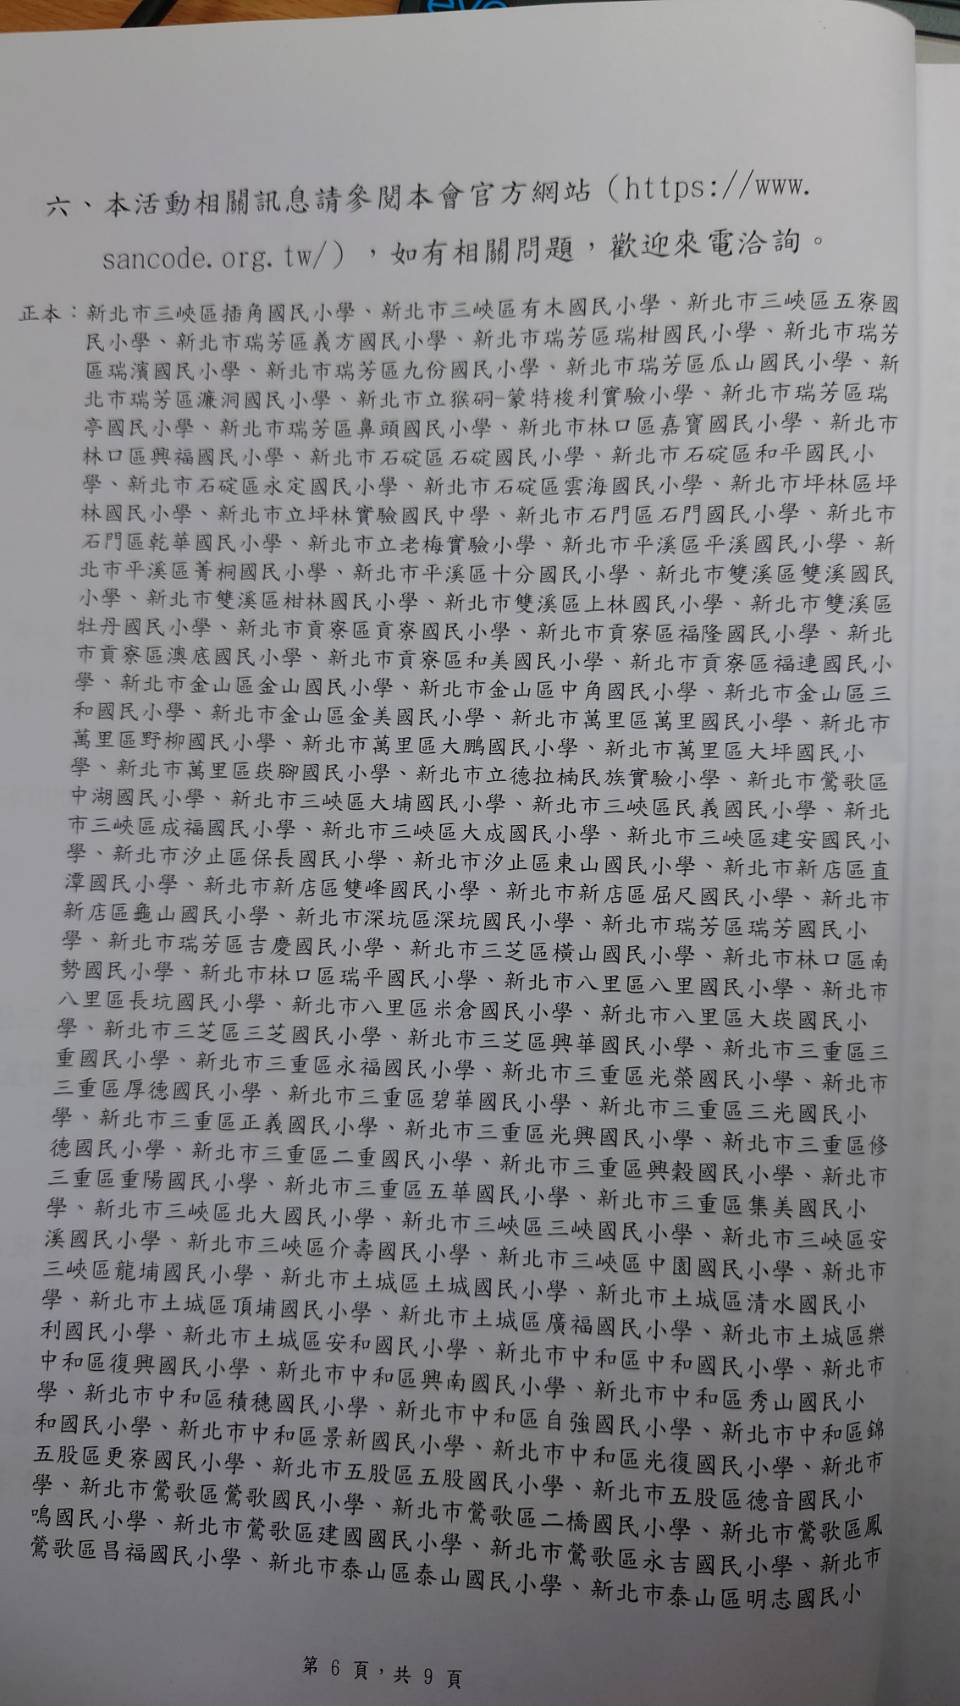 evo
六、本活動相關訊息請參閱本會官方網站（https://www.
sancode.org.tw/），如有相關問題，歡迎來電洽詢。
正本：新北市三峽區插角國民小學、新北市三峽區有木國民小學、新北市三峽區五寮國
民小學、新北市瑞芳區義方國民小學、新北市瑞芳區瑞柑國民小學、新北市瑞芳
區瑞濱國民小學、新北市瑞芳區九份國民小學、新北市瑞芳區瓜山國民小學、新
北市瑞芳區濂洞國民小學、新北市立猴硐-蒙特梭利實驗小學、新北市瑞芳區瑞
亭國民小學、新北市瑞芳區鼻頭國民小學、新北市林口區嘉寶國民小學、新北市
林口區興福國民小學、新北市石碇區石碇國民小學、新北市石碇區和平國民小
學、新北市石碇區永定國民小學、新北市石碇區雲海國民小學、新北市坪林區坪
林國民小學、新北市立坪林實驗國民中學、新北市石門區石門國民小學、新北市
石門區乾華國民小學、新北市立老梅實驗小學、新北市平溪區平溪國民小學、新
北市平溪區菁桐國民小學、新北市平溪區十分國民小學、新北市雙溪區雙溪國民
小學、新北市雙溪區柑林國民小學、新北市雙溪區上林國民小學、新北市雙溪區
牡丹國民小學、新北市貢寮區貢寮國民小學、新北市貢寮區福隆國民小學、新北
市貢寮區澳底國民小學、新北市貢寮區和美國民小學、新北市貢寮區福連國民小
學、新北市金山區金山國民小學、新北市金山區中角國民小學、新北市金山區三
和國民小學、新北市金山區金美國民小學、新北市萬里區萬里國民小學、新北市
萬里區野柳國民小學、新北市萬里區大鵬國民小學、新北市萬里區大坪國民小
學、新北市萬里區崁腳國民小學、新北市立德拉楠民族實驗小學、新北市鶯歌區
中湖國民小學、新北市三峽區大埔國民小學、新北市三峽區民義國民小學、新北
市三峽區成福國民小學、新北市三峽區大成國民小學、新北市三峽區建安國民小
學、新北市汐止區保長國民小學、新北市汐止區東山國民小學、新北市新店區直
潭國民小學、新北市新店區雙峰國民小學、新北市新店區屈尺國民小學、新北市
新店區龜山國民小學、新北市深坑區深坑國民小學、新北市瑞芳區瑞芳國民小
學、新北市瑞芳區吉慶國民小學、新北市三芝區橫山國民小學、新北市林口區南
勢國民小學、新北市林口區瑞平國民小學、新北市八里區八里國民小學、新北市
八里區長坑國民小學、新北市八里區米倉國民小學、新北市八里區大崁國民小
學、新北市三芝區三芝國民小學、新北市三芝區興華國民小學、新北市三重區三
重國民小學、新北市三重區永福國民小學、新北市三重區光榮國民小學、新北市
三重區厚德國民小學、新北市三重區碧華國民小學、新北市三重區三光國民小
學、新北市三重區正義國民小學、新北市三重區光興國民小學、新北市三重區修
德國民小學、新北市三重區二重國民小學、新北市三重區興穀國民小學、新北市
三重區重陽國民小學、新北市三重區五華國民小學、新北市三重區集美國民小
學、新北市三峽區北大國民小學、新北市三峽區三峽國民小學、新北市三峽區安
溪國民小學、新北市三峽區介壽國民小學、新北市三峽區中園國民小學、新北市
三峽區龍埔國民小學、新北市土城區土城國民小學、新北市土城區清水國民小
學、新北市土城區頂埔國民小學、新北市土城區廣福國民小學、新北市土城區樂
利國民小學、新北市土城區安和國民小學、新北市中和區中和國民小學、新北市
中和區復興國民小學、新北市中和區興南國民小學、新北市中和區秀山國民小
學、新北市中和區積穗國民小學、新北市中和區自強國民小學、新北市中和區錦
和國民小學、新北市中和區景新國民小學、新北市中和區光復國民小學、新北市
五股區更寮國民小學、新北市五股區五股國民小學、新北市五股區德音國民小
學、新北市鶯歌區鶯歌國民小學、新北市鶯歌區二橋國民小學、新北市鶯歌區鳳
鳴國民小學、新北市鶯歌區建國國民小學、新北市鶯歌區永吉國民小學、新北市
鶯歌區昌福國民小學、新北市泰山區泰山國民小學、新北市泰山區明志國民小
第 6 頁，共 9 頁